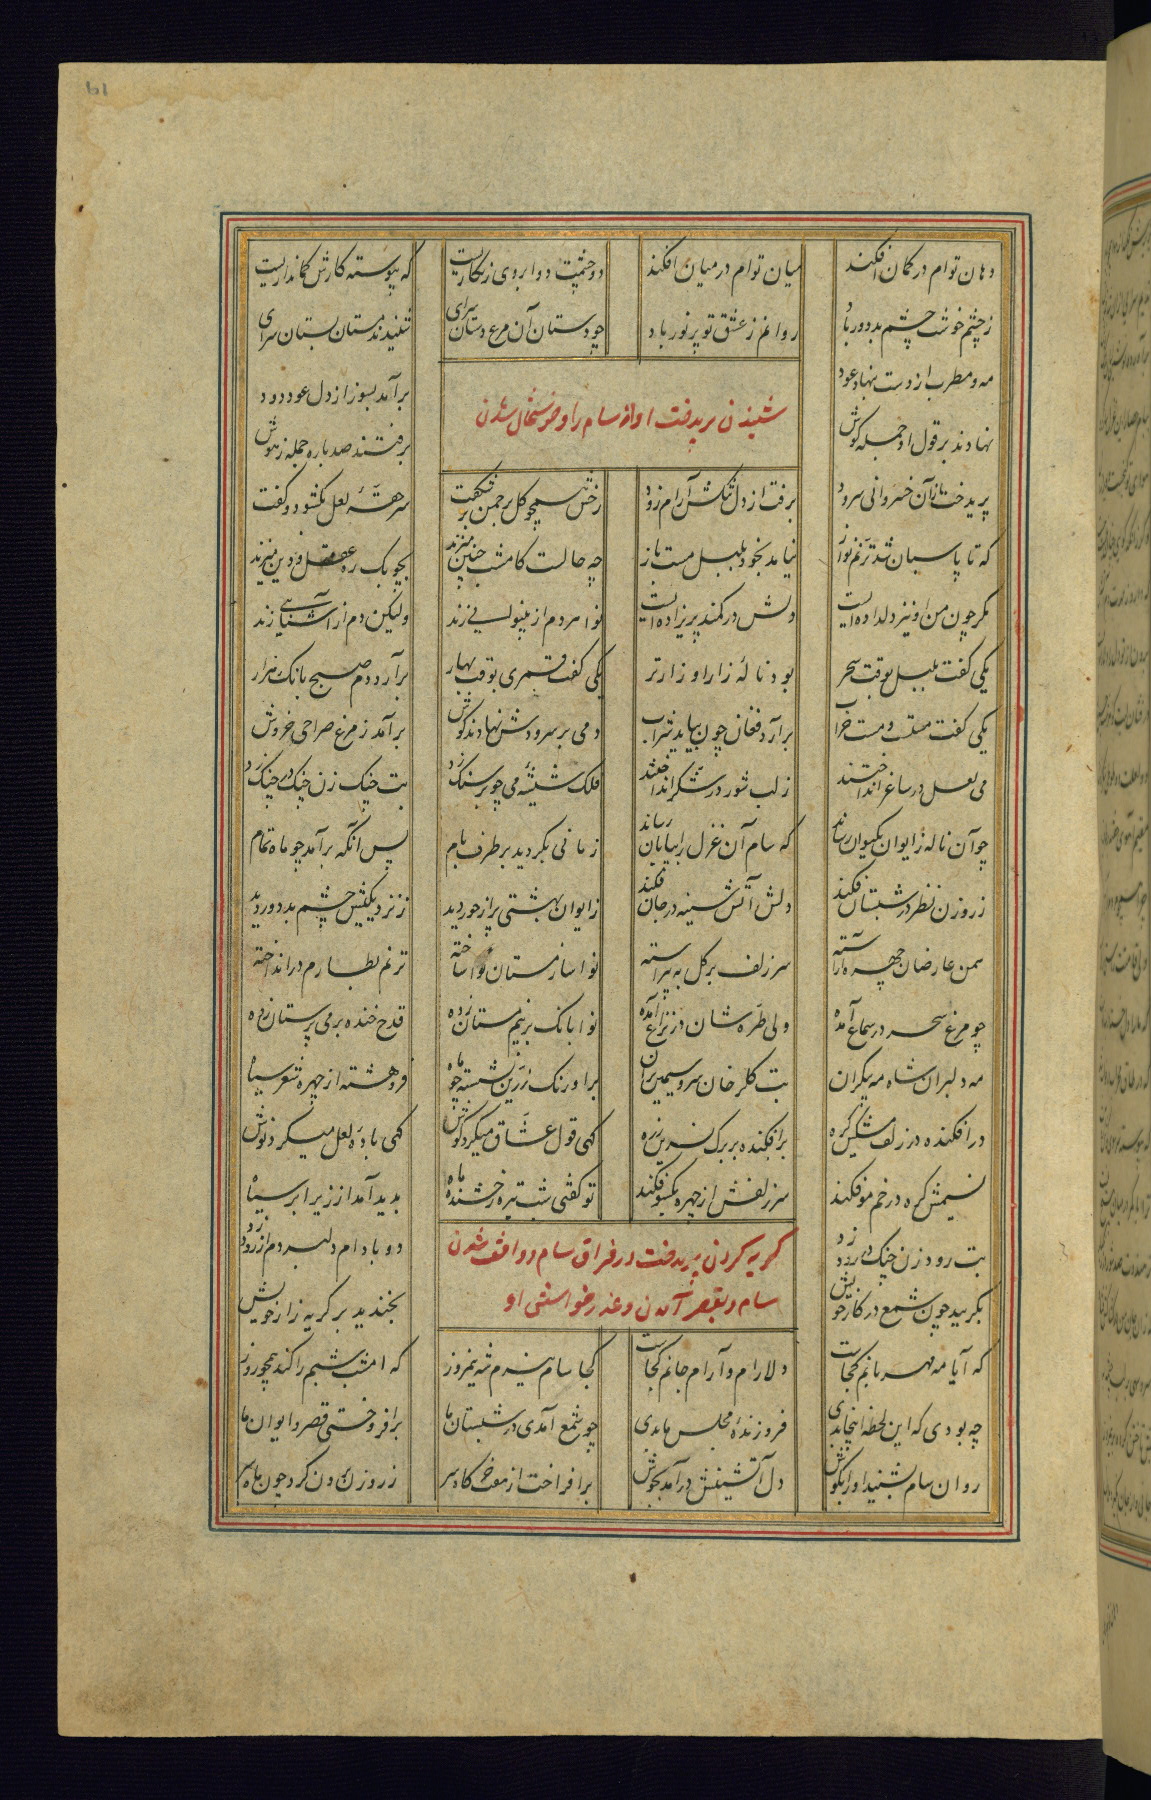 دهان توام در کمان افکند میان توام در میان افکند دو چشمت دو ابروی زنگاریست که پیوسته کارش کمانداریست
ز چشم خوشت چشم بد دور باد روانم ز عشق تو پر نور باد چو دستان آن مرغ دستان سرای شنیدند مستان بستان سرای
مه و مطرب از دست بنهاد عود برآمد بسوز از دل عود دود
نهادند بر قول او جمله گوش برفتند صد باره جمله ز هوش
شنیدن پریدخت اواز سام را و خوشحال شدن
پریدخت از آن خسروانی سرود برفت از دل تنگش آرام زود رخش همچو گل بر چمن بر شکفت سر حقهٔ لعل بگشود و گفت
که تا پاسبان شد ترنم نواز نیامد بخود بلبل مست باز چه حالست کامشب چنین میزند بچوبک ره عقل و دین میزند
مگر چون من او نیز دلداده‌ایست دلش در کمند پریزاده‌ایست نوا مردم از بینوایی زند ولیکن دم از آشنایی زند
یکی گفت بلبل بوقت سحر بود نالهٔ زار او زارتر یکی گفت قمری بوقت بهار برآرد دم صبح بانک هزار
یکی گفت مست و مست خراب برآرد فغان چون بیابد شراب دمی بر سرودش نهادند گوش برآمد ز مرغ صراحی خروش
می لعل در ساغر انداختند ز لب شور در شکر انداختند فلک شیشهٔ می چو بر سنگ زد بت چنگ زن چنگ در چنگ زد
چو آن ناله ز ایوان بکیوان رساند که سام آن غزل را بپایان رساند زمانی بگردید بر طرف بام پس آنگه برآمد چو ماه تمام
ز روزن نظر در شبستان فکند دلش آتش سینه در جان فکند ز ایوان بهشتی پر از حور دید ز نزدیکیش چشم بد دور دید
سمن عارضان چهره آراسته سر زلف بر گل به پیراسته نوا ساز مستان نوا ساخته ترنم بطارم در انداخته
چو مرغ سحر در سماع آمده ولی طره شان در نزاع آمده نوا بانک بر نیم مستان زده قدح خنده بر می پرستان زده
مه دلبران شاه مه پیکران بت گلرخان سرو سیمین بران بر اورنک زرین نشسته چو ماه فرو هشته از چهره شعر سیاه
در افکنده در زلف مشکین گره بر افکنده بر برک نسرین زره گهی قول عشاق میکرد گوش گهی بادهٔ لعل میکرد نوش
نسیمش گره در خم مو فکند سر زلفش از چهره یکسو فکند تو گفتی شب تیره رخشنده ماه بدید آمد از زیر ابر سیاه
بت رود زن چنگ در رود زد دو بادام دلبر دم از رود زد
بگریید چون شمع در کار خویش بخندید بر گریه زار خویش
گریه کردن پریدخت در فراق سام و واقف شدن
سام و بقصر آمدن و عذر خواستن او
که آیا مه مهربانم کجاست دلارام و آرام جانم کجاست کجا سام نیرم شه نیمروز که امشب شبم را کند همچو روز
چه بودی که این لحظه اینجا بدی فروزندهٔ مجلس ما بدی چو شمع آمدی در شبستان ما برافروختی قصر و ایوان ما
روان سام بشنید آوا بگوش دل آتشینش درآمد بجوش برافراخت از سقف خرگاه سر ز روزن برون کرد چون ماه سر